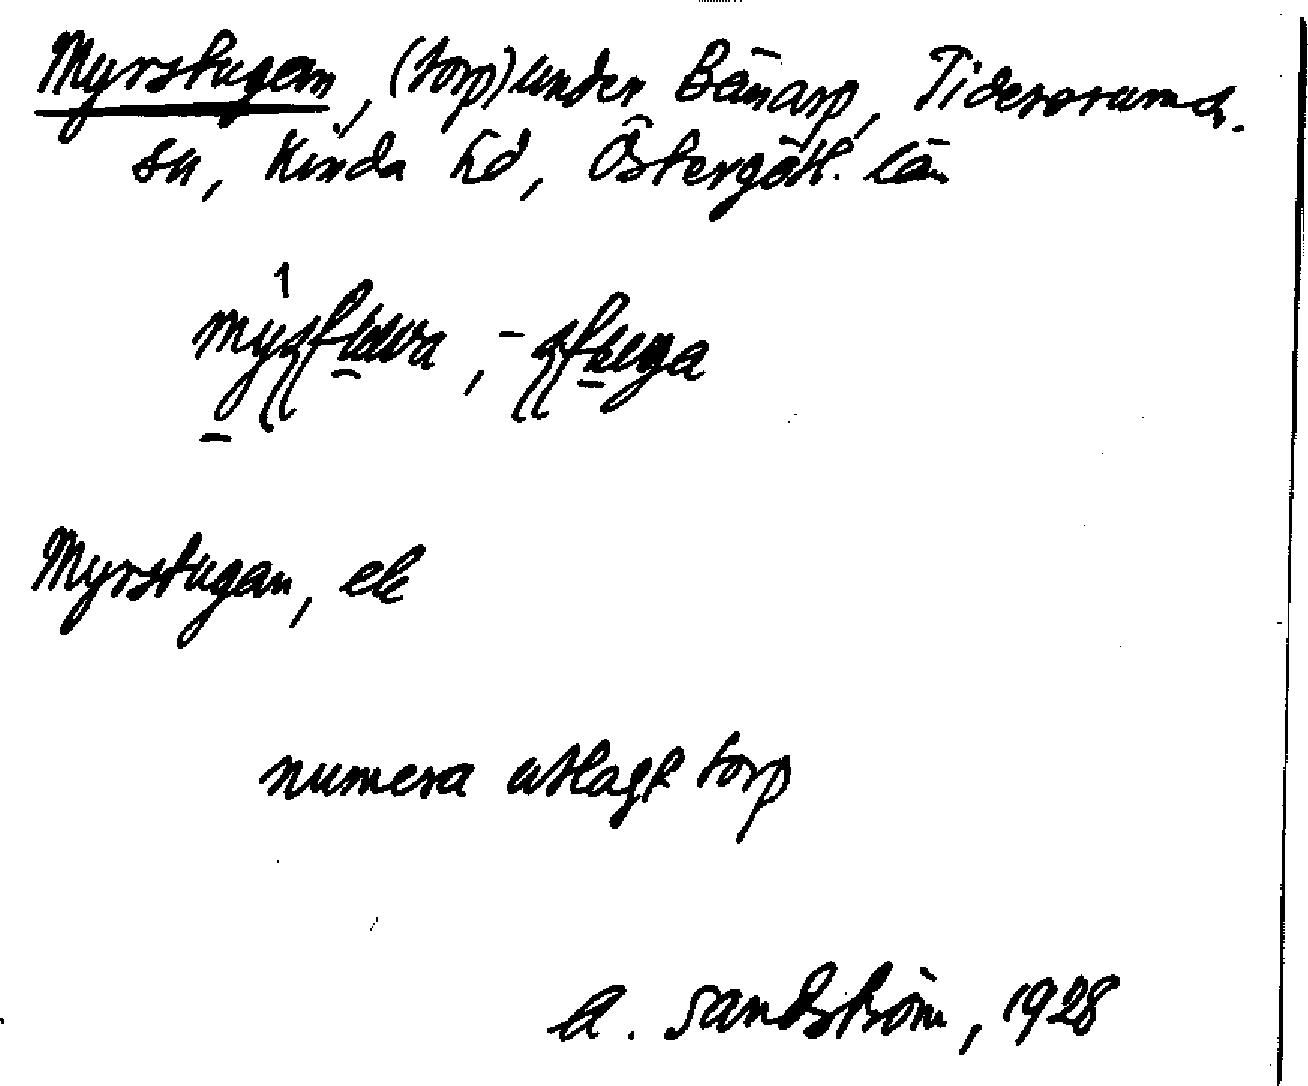 Myrstugan, (torp) under Bänarp, Tidersrums
sn, Kinda hd, Östergötl. län
Myrstugan, ek
numera utlagt torp
A. Sandström, 1928